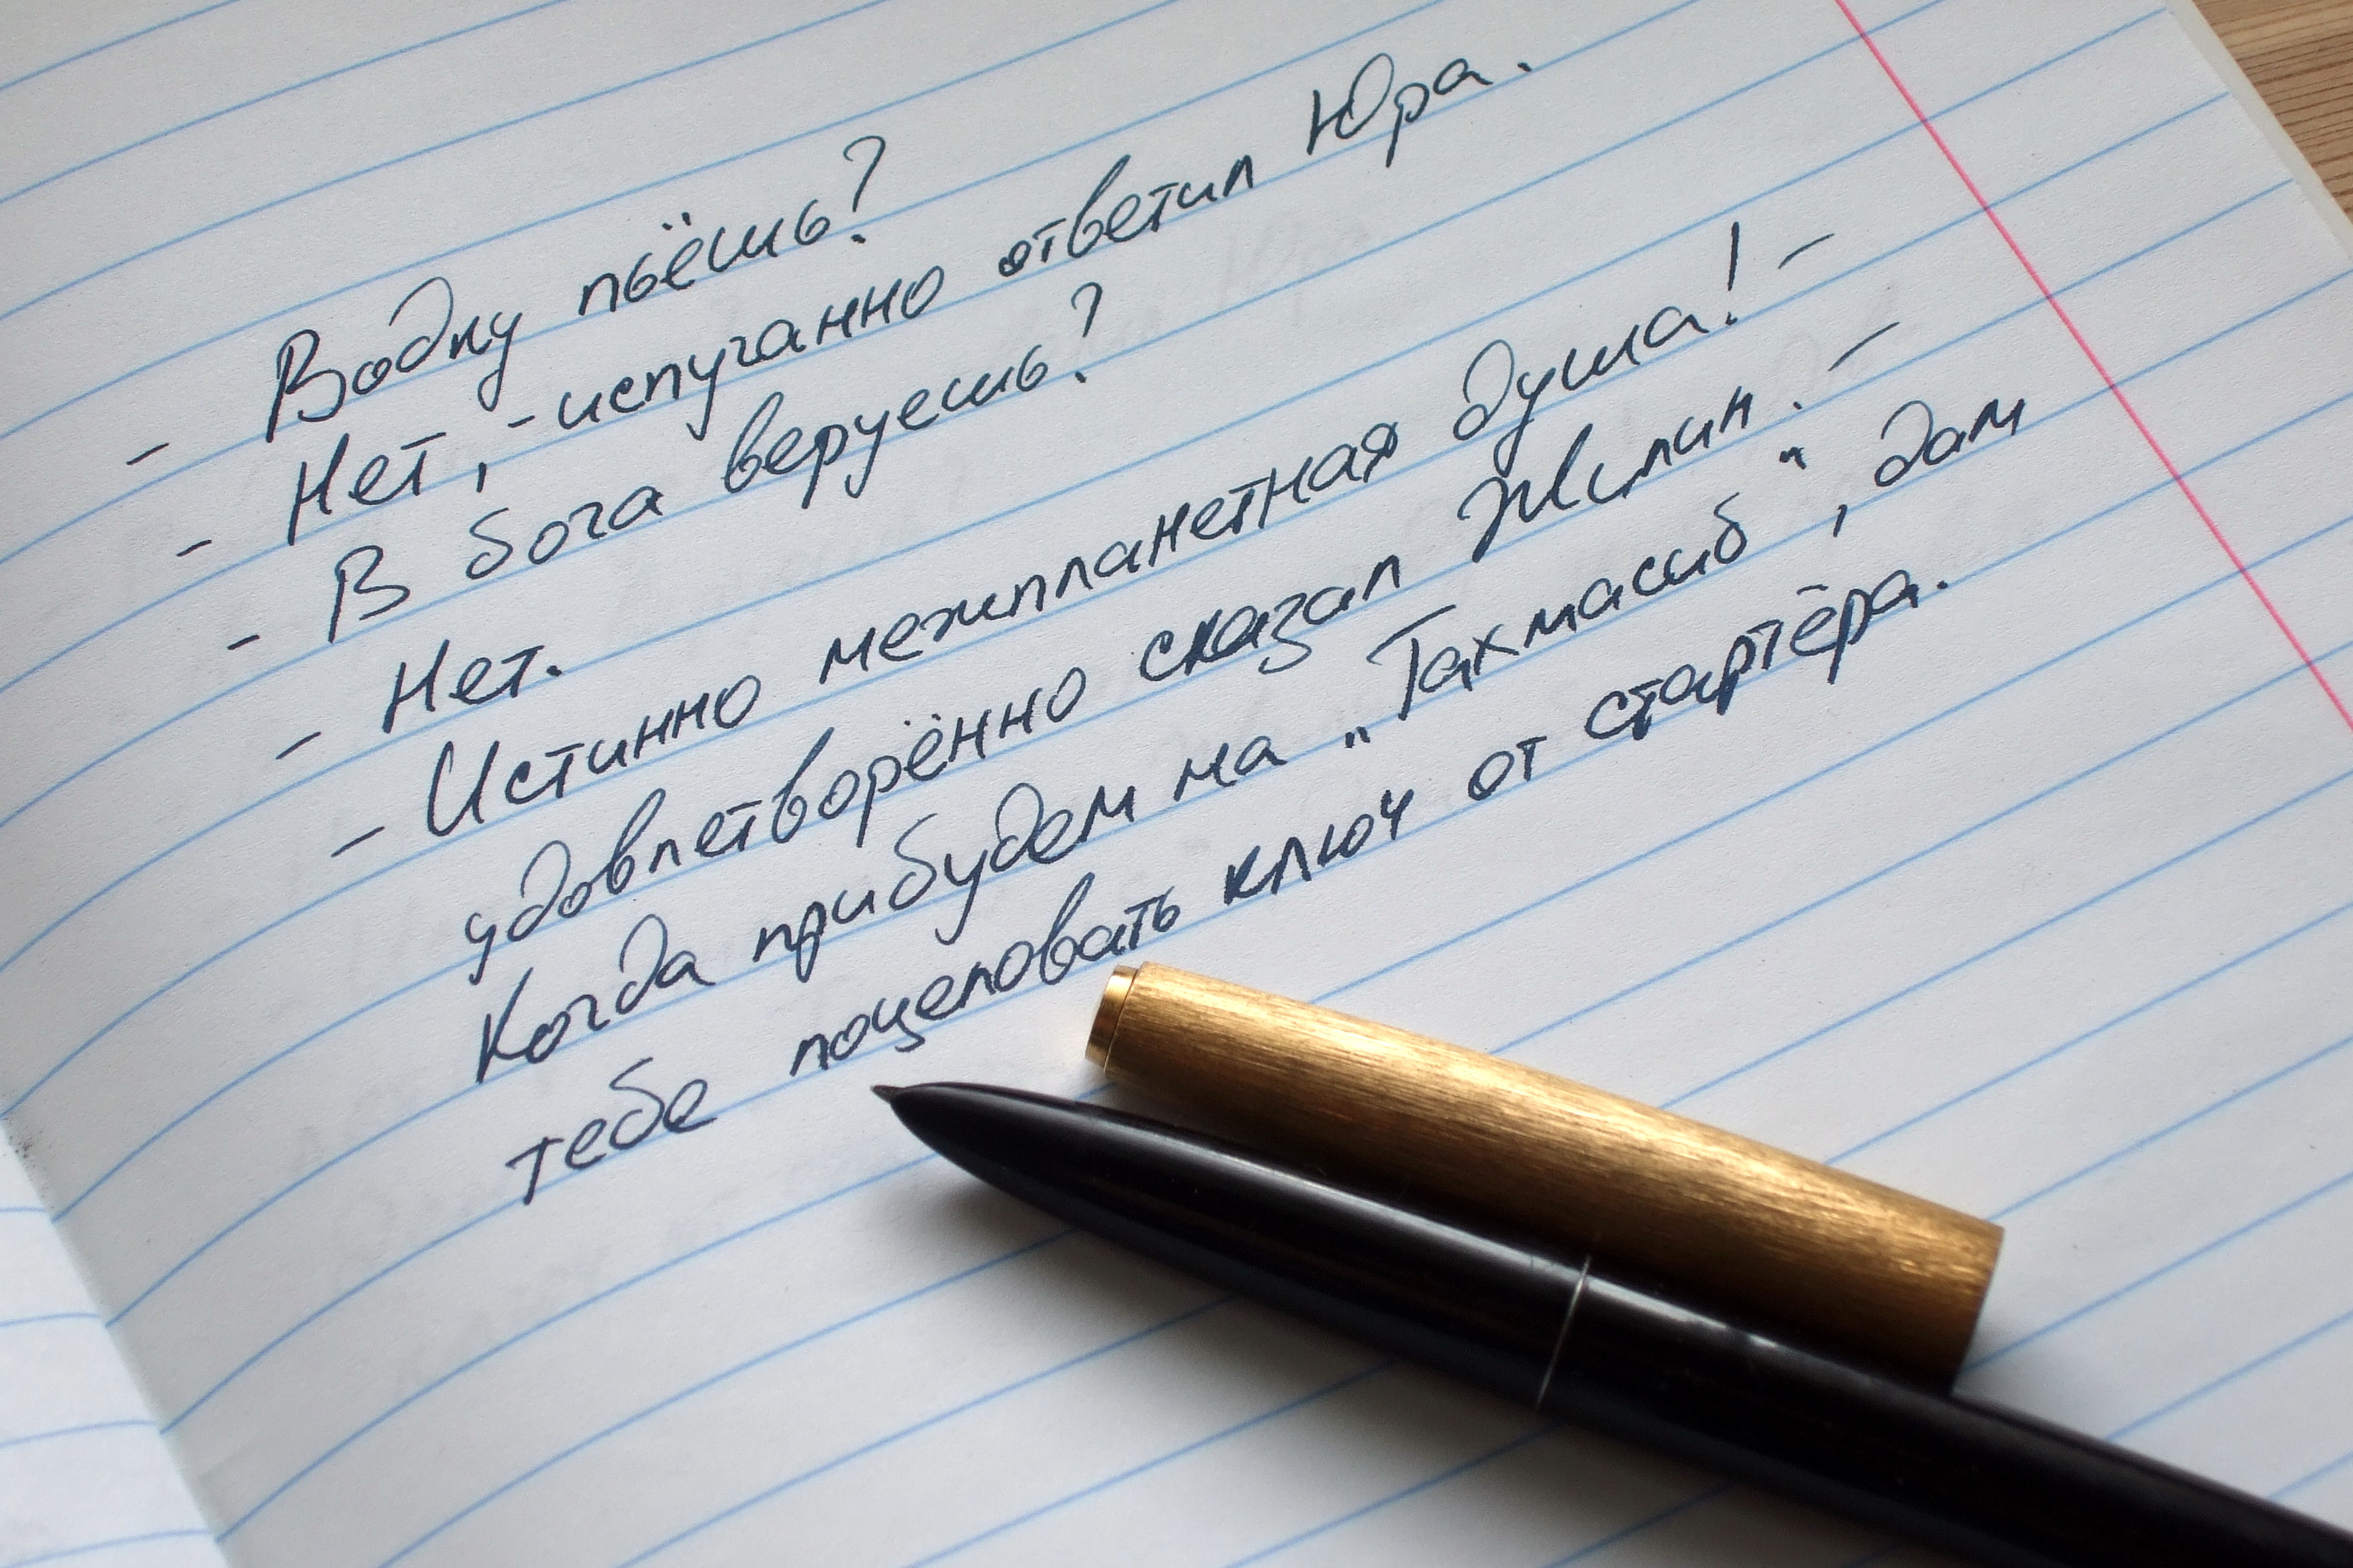 - Водку пьёшь?
- Нет, - испуганно ответил Юра.
- В бога веруешь?
- Нет.
- Истинно межпланетная душа! -
удовлетворённо сказал Жилин. -
Когда прибудем на "Тахмасиб", дам
тебе поцеловать ключ от стартёра.